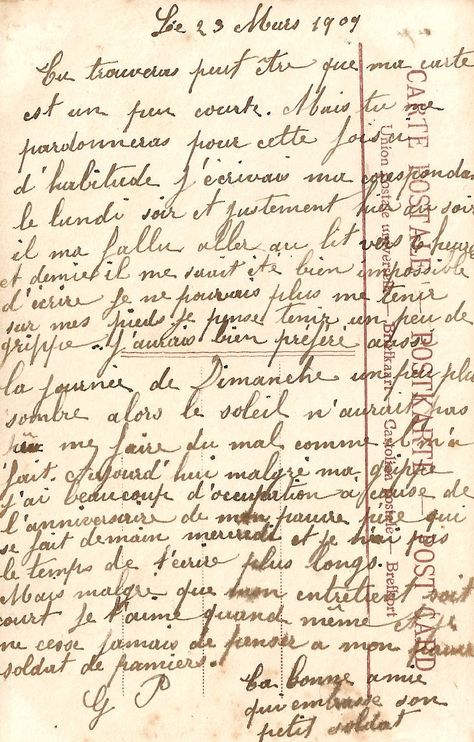 Le 23 Mars 1909
Tu trouveras peut être que ma carte
est un peu courte. Mais tu me
pardonneras pour cette fois ci
d'habitude j'écrivais ma corespondan
le lundi soir et justement hier au soir
il ma fallu aller au lit vers heure
et demie il me serait été bien impossible
d'écrire je ne pouvais plus me tenir
sur mes pieds je pense tenir un peu de
grippe. J'aurais bien préféré aussi
la journée de Dimanche un peu plus
sombre alors le soleil n'aurait pas
pu me faire du mal comme il m'a
fait. Aujourd'hui malgré ma grippe
j'ai beaucoup d'occupation a cause de
l'anniversaire de mon pauvre père qui
se fait demain mercredi et je n'ai pas
le temps de t'écrire plus longs.
Mais malgré que mon entretient soit
court je t'aime quand même et je
ne cesse jamais de penser a mon
soldat de pamiers.
G P
Ta bonne amie
qui embrasse son
petit soldat
CARTE POSTALE POSTKARTE POST CARD
Union postale universelle Briefkaart Cartolina postale Brefkort